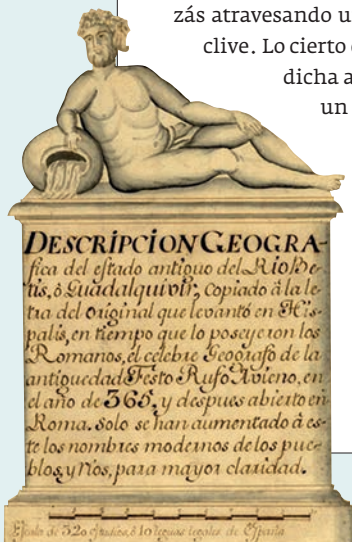 zás atravesando u
clive. Lo cierto
dicha a
un
DESCRIPCION GEOGRA-
fica del estado antiguo del Rio Be-
tis, ò Guadalquivir, copiado à la le-
tra del original que levantò en His-
palis, en tiempo que lo poseyeron los
Romanos, el celebre Geografo de la
antiguedad Festo Rufo Avieno, en
el año de 365, y despues abierto en
Roma. solo se han aumentado à es-
te los nombres modernos de los pue-
blos, y rios, para mayor claridad.
Escala de 320 estadios, ò 10 leguas legales de España